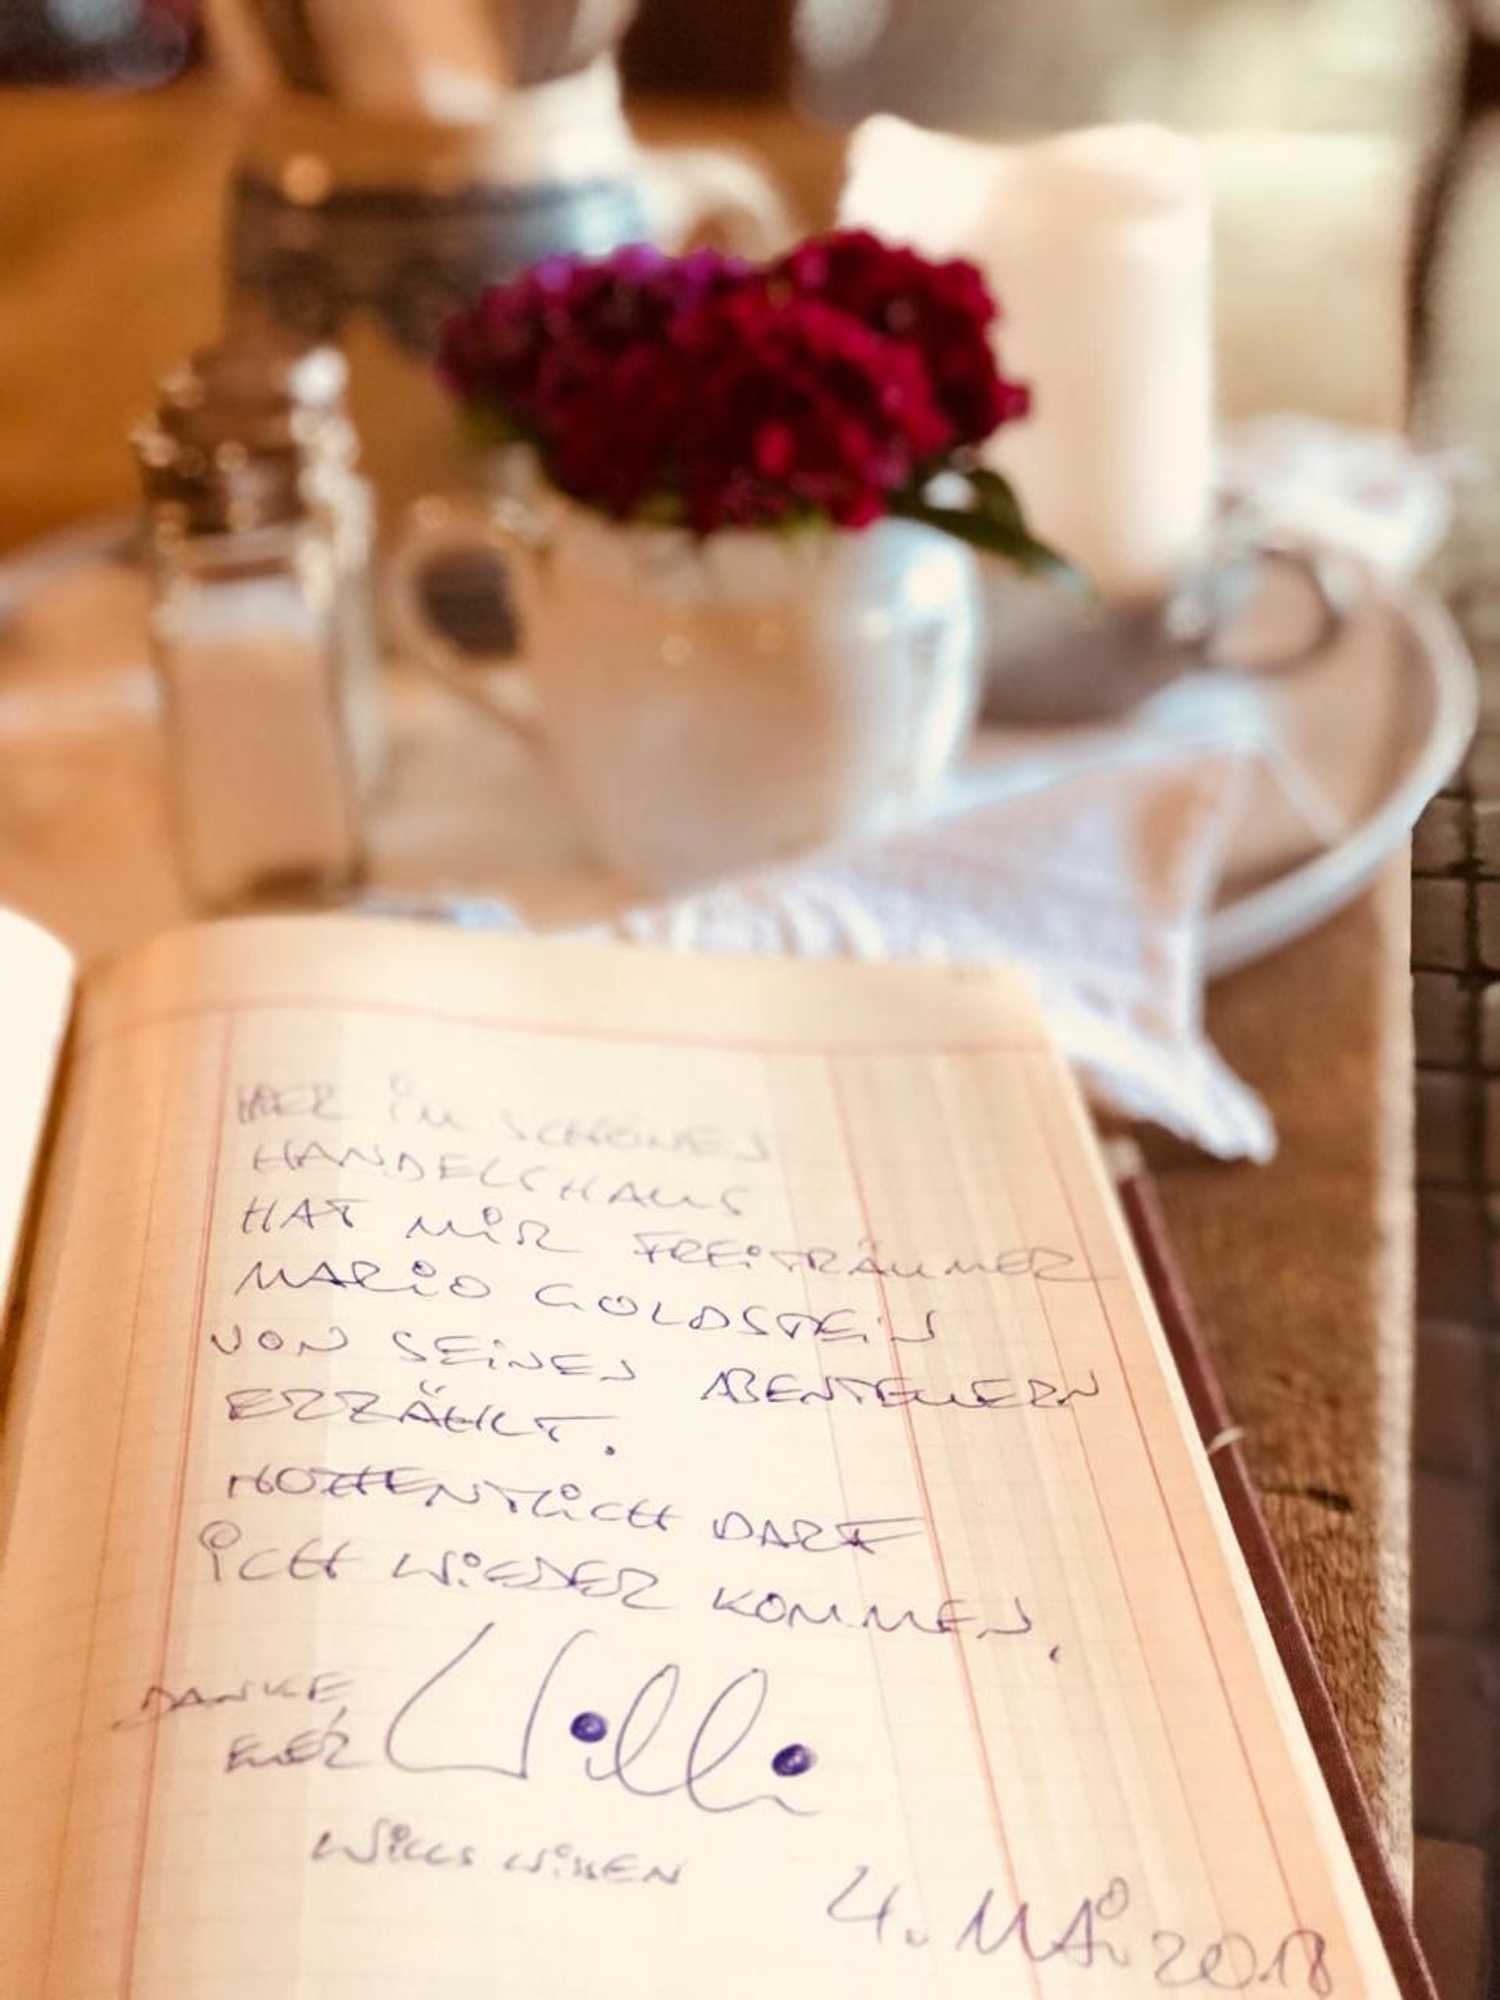 HIER IM SCHÖNEN
HANDELSHAUS
HAT MIR FREITRÄUMER
MARIO GOLDSTEIN
VON SEINEN ABENTEUERN
ERZÄHLT.
HOFFENTLICH DARF
ICH WIEDER KOMMEN.
DANKE,
EUER Willi
WILLS WISSEN
4. MAI 2018